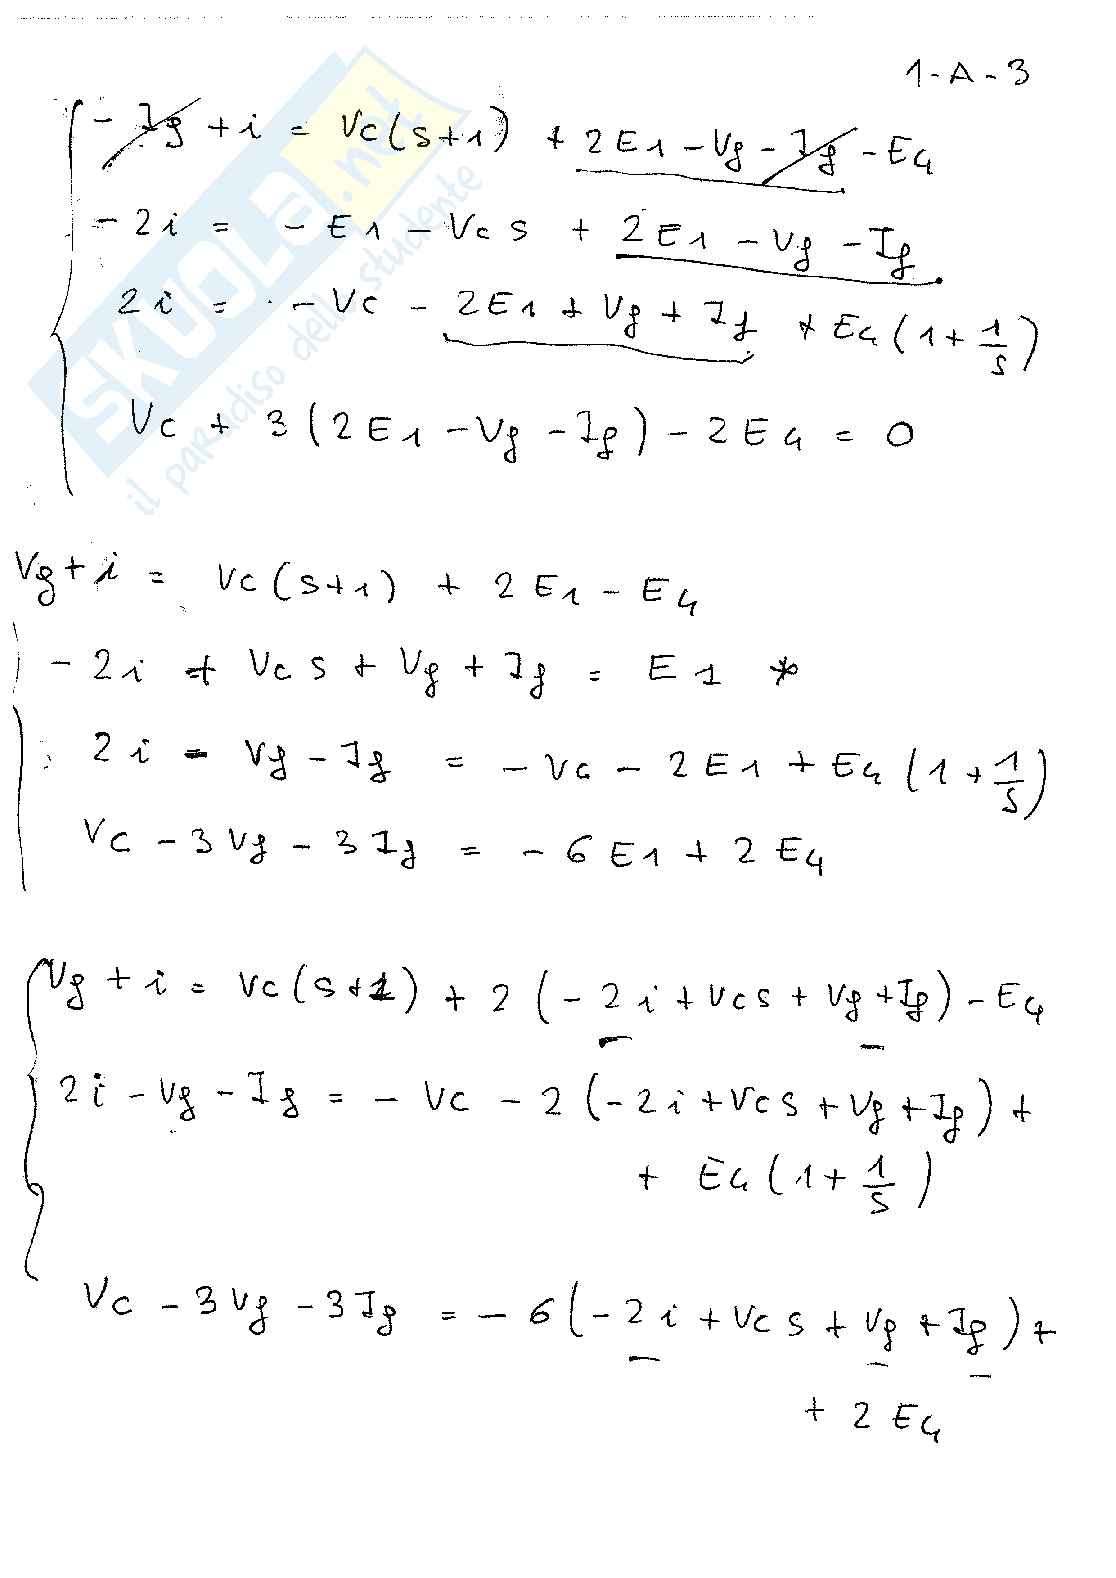 1-A-3
- Ig + i = Vc(s+1) + 2E1 - Vg - Ig - E4
- 2i = - E1 - Vc s + 2E1 - Vg - Ig
2i = - Vc - 2E1 + Vg + Ig + E4(1 + 1/s)
Vc + 3(2E1 - Vg - Ig) - 2E4 = 0
Vg + i = Vc(s+1) + 2E1 - E4
- 2i + Vc s + Vg + Ig = E1 *
2i - Vg - Ig = - Vc - 2E1 + E4(1 + 1/s)
Vc - 3Vg - 3Ig = - 6E1 + 2E4
Vg + i = Vc(s+1) + 2(- 2i + Vcs + Vg + Ig) - E4
2i - Vg - Ig = - Vc - 2(- 2i + Vcs + Vg + Ig) +
+ E4(1 + 1/s)
Vc - 3Vg - 3Ig = - 6(- 2i + Vcs + Vg + Ig) +
+ 2E4
SKUOLA.net
il paradiso dello studente